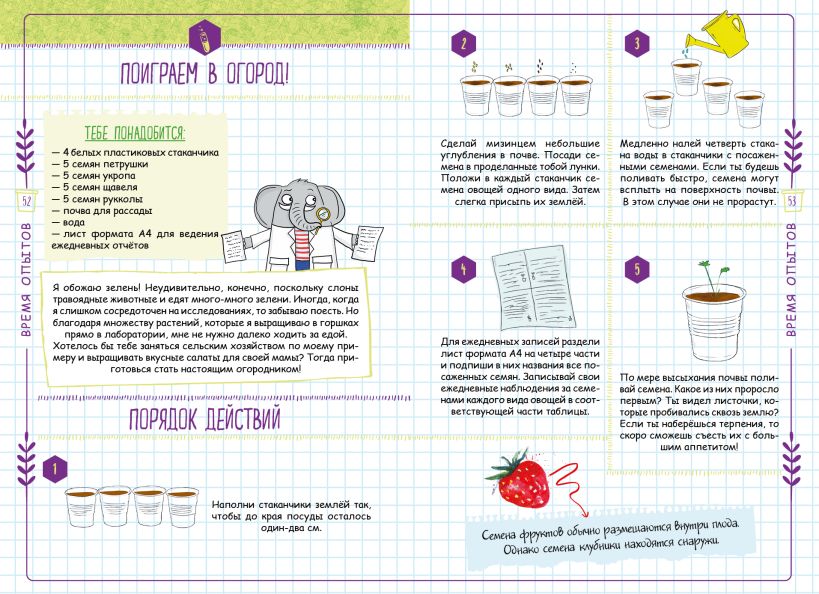 ПОИГРАЕМ В ОГОРОД!
ТЕБЕ ПОНАДОБИТСЯ:
— 4 белых пластиковых стаканчика
— 5 семян петрушки
— 5 семян укропа
— 5 семян щавеля
— 5 семян рукколы
— почва для рассады
— вода
— лист формата А4 для ведения
ежедневных отчётов
52
ВРЕМЯ ОПЫТОВ
Я обожаю зелень! Неудивительно, конечно, поскольку слоны
травоядные животные и едят много-много зелени. Иногда, когда
я слишком сосредоточен на исследованиях, то забываю поесть. Но
благодаря множеству растений, которые я выращиваю в горшках
прямо в лаборатории, мне не нужно далеко ходить за едой.
Хотелось бы тебе заняться сельским хозяйством по моему при-
меру и выращивать вкусные салаты для своей мамы? Тогда при-
готовься стать настоящим огородником!
ПОРЯДОК ДЕЙСТВИЙ
1
Наполни стаканчики землёй так,
чтобы до края посуды осталось
один-два см.
2
Сделай мизинцем небольшие
углубления в почве. Посади се-
мена в проделанные тобой лунки.
Положи в каждый стаканчик се-
мена овощей одного вида. Затем
слегка присыпь их землёй.
3
Медленно налей четверть стака-
на воды в стаканчики с посажен-
ными семенами. Если ты будешь
поливать быстро, семена могут
всплыть на поверхность почвы.
В этом случае они не прорастут.
4
Для ежедневных записей раздели
лист формата А4 на четыре части
и подпиши в них названия все по-
саженных семян. Записывай свои
ежедневные наблюдения за семе-
нами каждого вида овощей в соот-
ветствующей части таблицы.
5
По мере высыхания почвы поли-
вай семена. Какое из них проросло
первым? Ты видел листочки, ко-
торые пробивались сквозь землю?
Если ты наберёшься терпения, то
скоро сможешь съесть их с боль-
шим аппетитом!
Семена фруктов обычно размещаются внутри плода.
Однако семена клубники находятся снаружи.
53
ВРЕМЯ ОПЫТОВ